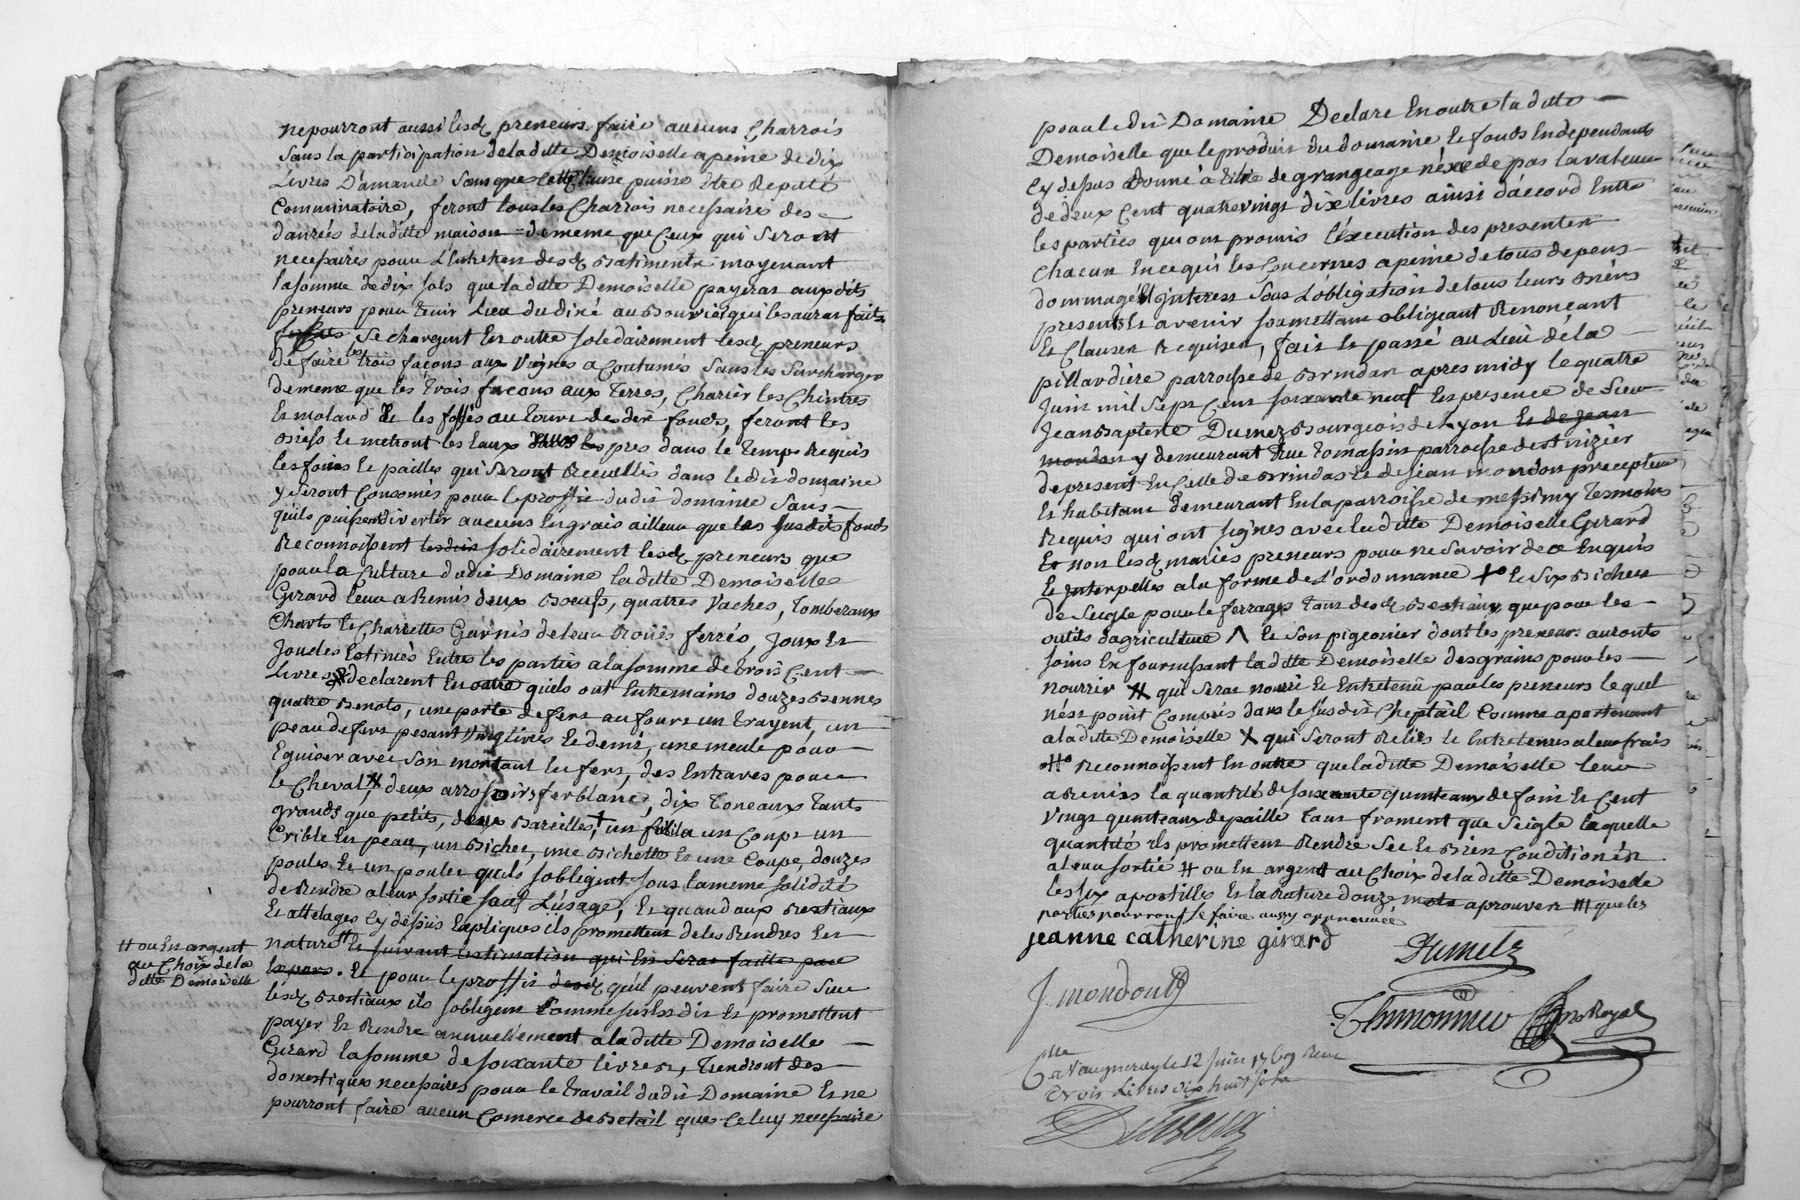 ne pourront aussi lesd preneurs faire aucuns Charrois
sans la participation de laditte Demoiselle a peine de dix
Livres D'amande sans que cette Clause puisse être Reputé
Comminatoire, feront tous les Charrois necessaires des
danrées de laditte maison de meme que Ceux qui seront
necessaires pour L'Entretien desd Batiments moyenant
la somme de dix sols que laditte Demoiselle payerat auxdits
preneurs pour tenir Lieu du diné au Bouvier qui les aurat faits
se chargent En outre solidairement lesd preneurs
de faire les trois façons aux Vignes a Coutumés sans les Surcharger
de meme que les trois façons aux terres, Charier les Chintres
Et molard Et les fossés au tour desdit fonds, feront les
Biefs Et metront les Eaux pres dans le temps Requis
les foins Et pailles qui seront Recueillis dans le dit domaine
y seront Consomés pour le proffit dudit domaine Sans
qu'ils puissent divertir aucuns Engrais ailleur que les susdits fonds
Reconnoissent solidairement lesd preneurs que
pour la Culture dudit Domaine laditte Demoiselle
Girard leur a Remis deux Bœufs, quatres Vaches, tomberaux
Charts Et Charrettes Garnis de leur Roües ferrés, Joux Et
Joucles Estimés Entre les parties a la somme de trois Cent
Livres declarent En outre qu'ils ont Entremains douzes Bennes
quatre Benots, une porte de fert au four un trayent, un
peau de fert pesant vingt livres Et demi, une meule pour
Eguiser avec son montant En fert, des Entraves pour
le Cheval, deux arrosoirs ferblanc, dix toneaux tants
grands que petits, deux Bareilles, un un Coupe un
Crible En peau, un Bichet, une Bichette Et une Coupe, douzes
poules Et un poulet qu'ils sobligent sous la meme solidité
de Rendre a leur sortie sauf L'usage, Et quand aux Bestiaux
Et attelages Cy dessus Expliqués ils promettent de les Rendres En
nature Et suivant lestimation qui En Serat faitte par
Expers. Et pour le proffit qu'il peuvent faire sur
lesd Bestiaux ils sobligent Comme susdit Et promettent
payer Et Rendre annuellement a laditte Demoiselle
Girard la somme de soixante livres, tiendront des
domestiques necessaires pour le travail dudit Domaine Et ne
pourront faire aucun Comerce de Betail que Celuy necessaire
# ou En argent
au Choix de la
ditte Demoiselle
pour le dit Domaine Declare En outre laditte
Demoiselle que le produit du domaine Et fonds Independants
Cy dessus donné a titre de grangeage n'éxede pas la valeur
de deux Cent quatrevingt dix livres ainsi d'acord Entre
les parties qui ont promis l'éxecution des presentes
Chacun En ce qui les Concernes a peine de tous depens
dommages Et interest sous L'obligation de tous leurs Biens
presents Et avenir soumettant obligeant Renonçant
Et Clauses Requises, fait Et passé au Lieu de la
pillardière parroisse de Brindas apres midy le quatre
Juin mil sept Cent soixante neuf En presence de sieur
Jean Baptiste Dumez Bourgeois de Lyon Et de Jean
mondon y demeurant Rue tomassin parroisse de st nizier
de present En Celle de Brindas Et de Jean mondon precepteur
Et habitant demeurant En la parroisse de messimy temoins
Requis qui ont signés avec laditte Demoiselle Girard
Et non lesd mariés preneurs pour ne savoir de ce Enquis
Et Interpellés a la forme de L'ordonnance Et six Bichets
de seigle pour le ferrages tant desd Bestiaux que pour les
outils d'agriculture Λ Et son pigeonier dont les preneurs auronts
soins En fournissant laditte Demoiselle des grains pour les
nourrir # qui serat nourri Et Entretenu par les preneurs lequel
nést point Compris dans le susdit Cheptail Comme apartenant
a laditte Demoiselle X qui seront Reliés Et Entretenus a leur frais
Reconnoissent En outre que laditte Demoiselle leur
a Remis la quantité de soixante quinteaux de foin Et Cent
Vingt quinteaux de paille tant froment que seigle laquelle
quantité ils promettent Rendre sec Et Bien Conditionés
a leur sortie # ou En argent au Choix de la ditte Demoiselle
les six apostilles Et la Rature douze mots aprouvés ## que les
parties pourront se faire aussy approuvée
jeanne catherine girard
Dumetz
J. mondon
Thimonnier Nre Royal
Clle a Vaugneray le 12 Juin 1769 Reçu
trois Livres dix huit sols